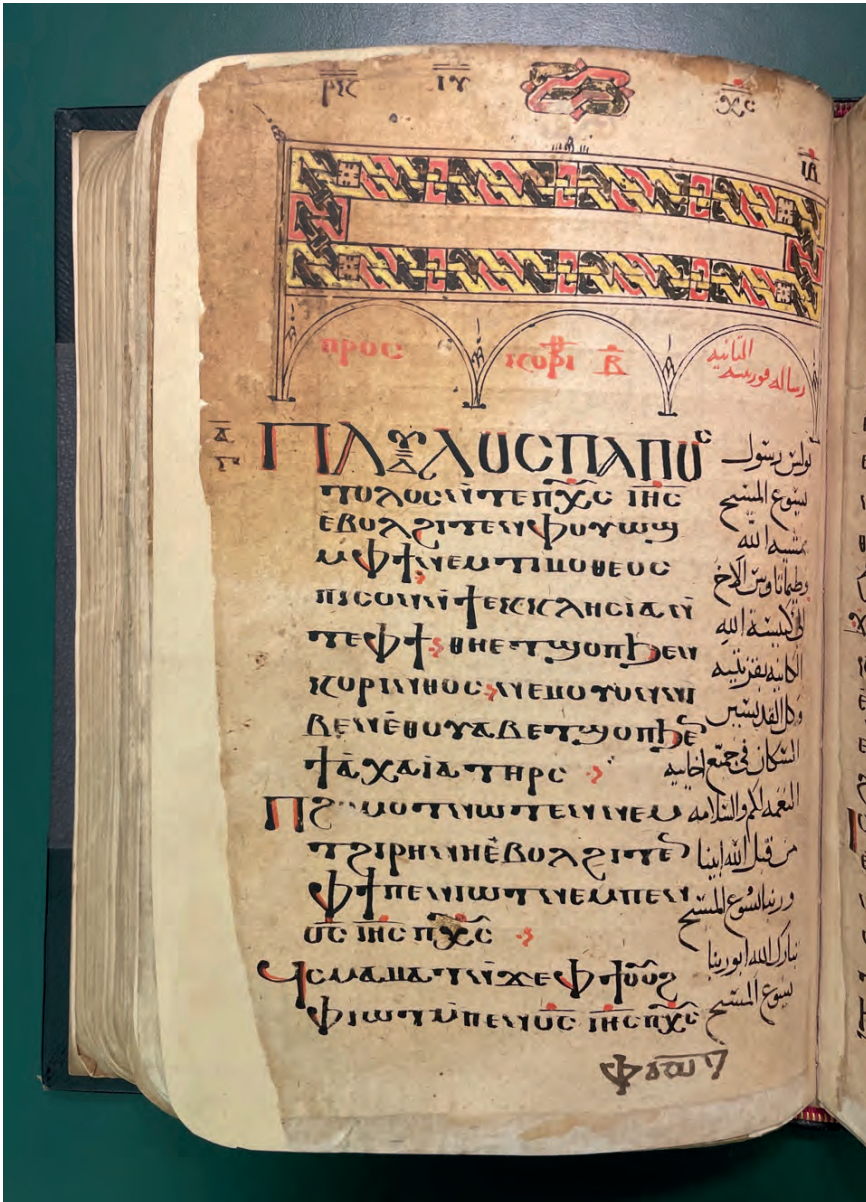 ⲓ̅ⲩ̅ ⲭ̅ⲥ̅
ⲓ̅ⲃ̅
ⲡⲣⲟⲥ ⲕⲟⲣⲓ ⲃ̅
الثانيه
رساله
ⲁ̅
ⲅ̅
ⲡⲁⲩⲗⲟⲥ ⲡⲁⲡⲟⲥ
ⲧⲟⲗⲟⲥ ⲛ̀ⲧⲉ ⲡⲭ̅ⲥ̅ ⲓⲏ̅ⲥ̅
ⲉ̀ⲃⲟⲗ ϩⲓⲧⲉⲛ ⲫⲟⲩⲱϣ
ⲙ̀ⲫϯ ⲛⲉⲙ ⲧⲓⲙⲟⲑⲉⲟⲥ
ⲡⲓⲥⲟⲛ ⲛ̀ϯⲉⲕⲕⲗⲏⲥⲓⲁ ⲛ̀
ⲧⲉ ⲫϯ ⲑⲏⲉⲧϣⲟⲡ ϧⲉⲛ
ⲕⲟⲣⲓⲛⲑⲟⲥ ⲛⲉⲙ ⲟⲩⲟⲛ ⲛⲓ
ⲃⲉⲛ ⲉ̀ⲑⲟⲩⲁⲃ ⲉⲧϣⲟⲡ ϧⲉ̅
ϯⲁ̀ⲭⲁⲓⲁ ⲧⲏⲣⲥ
ⲡϩⲙⲟⲧ ⲛⲱⲧⲉⲛ ⲛⲉⲙ
ⲧϩⲓⲣⲏⲛⲏ ⲉ̀ⲃⲟⲗ ϩⲓⲧⲉ̅
ⲫϯ ⲡⲉⲛⲓⲱⲧ ⲛⲉⲙ ⲡⲉⲛ
ⲟ̅ⲥ̅ ⲓⲏ̅ⲥ̅ ⲡⲭ̅ⲥ̅
ϥⲥⲙⲁⲙⲁⲧ ⲛ̀ϫⲉ ⲫϯ ⲟⲩⲟϩ
ⲫⲓⲱⲧ ⲙ̀ⲡⲉⲛⲟ̅ⲥ̅ ⲓⲏ̅ⲥ̅ ⲡⲭ̅ⲥ̅
بولس رسول
يسوع المسيح
بمشيه الله
وطيماثاوس الاخ
الى كنيسة الله
الكاينه بقرنتيه
وكل القديسين
السكان في جميع اخاييه
النعمه لكم والسلامه
من قبل الله ابينا
وربنا يسوع المسيح
تبارك الله ابو ربنا
يسوع المسيح